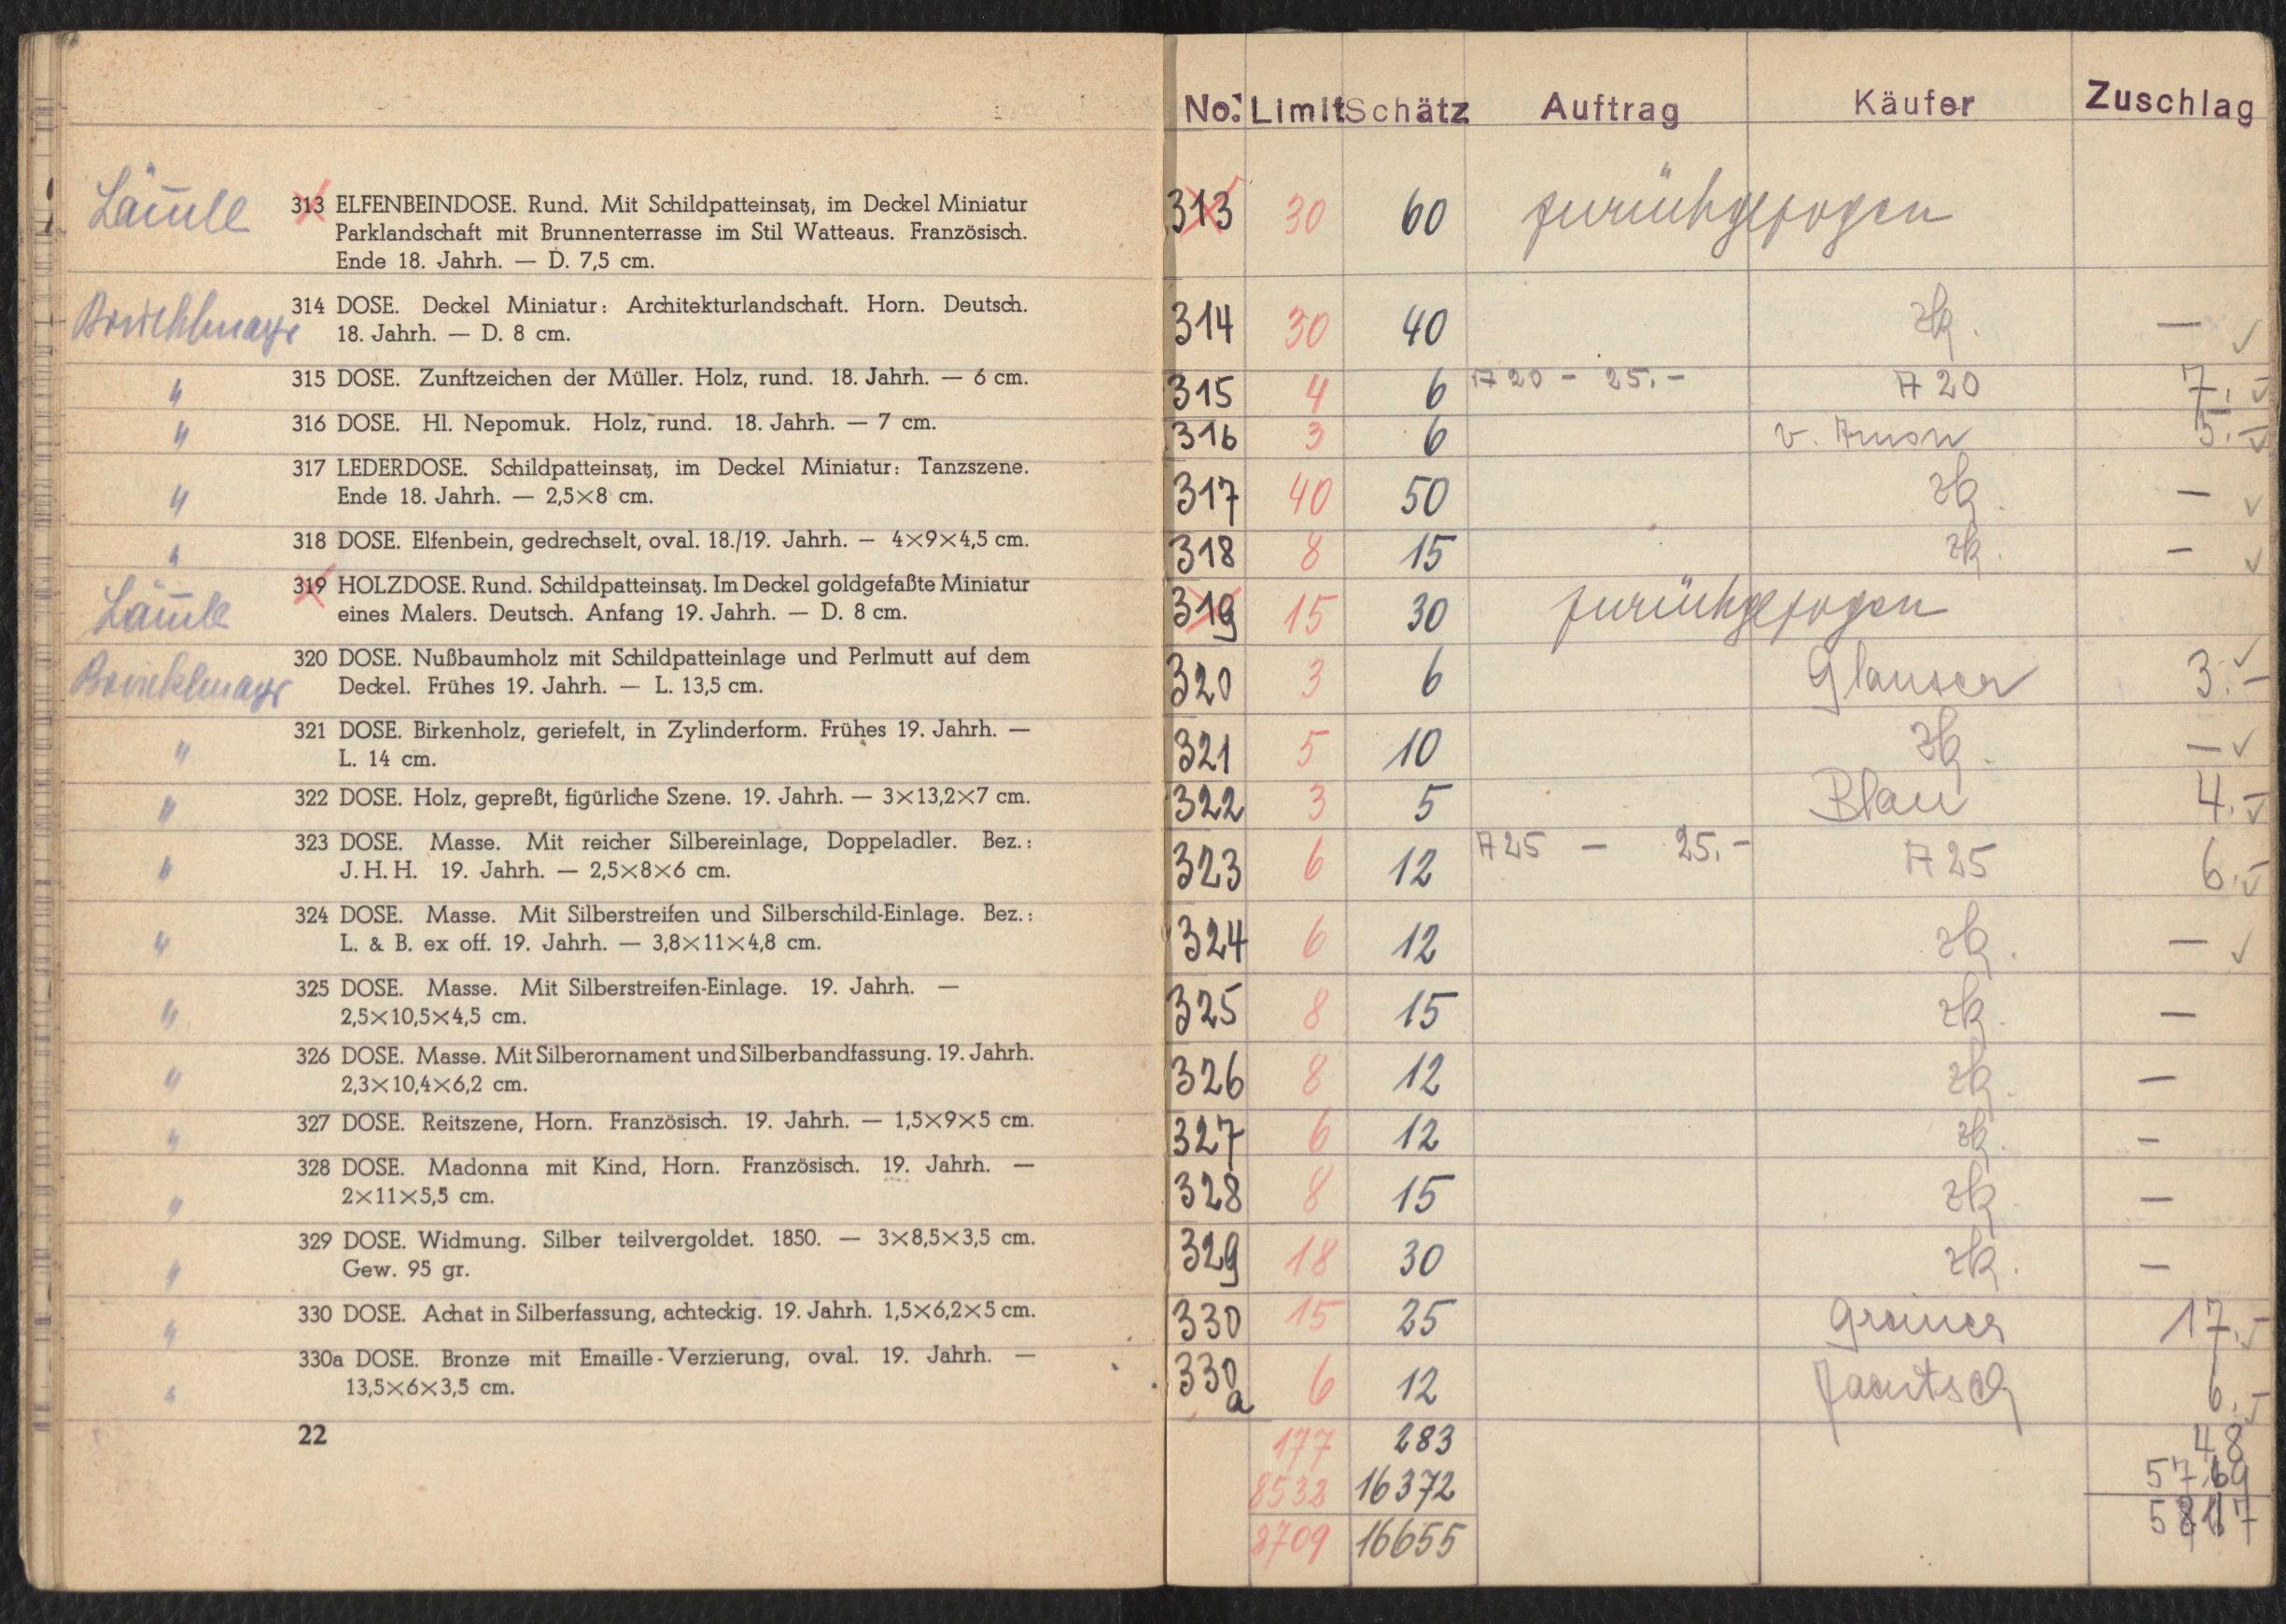 Lämle
313 ELFENBEINDOSE. Rund. Mit Schildpatteinsatz, im Deckel Miniatur
Parklandschaft mit Brunnenterrasse im Stil Watteaus. Französisch.
Ende 18. Jahrh. — D. 7,5 cm.
314 DOSE. Deckel Miniatur: Architekturlandschaft. Horn. Deutsch.
18. Jahrh. — D. 8 cm.
" 315 DOSE. Zunftzeichen der Müller. Holz, rund. 18. Jahrh. — 6 cm.
" 316 DOSE. Hl. Nepomuk. Holz, rund. 18. Jahrh. — 7 cm.
317 LEDERDOSE. Schildpatteinsatz, im Deckel Miniatur: Tanzszene.
" Ende 18. Jahrh. — 2,5×8 cm.
" 318 DOSE. Elfenbein, gedrechselt, oval. 18./19. Jahrh. — 4×9×4,5 cm.
319 HOLZDOSE. Rund. Schildpatteinsatz. Im Deckel goldgefaßte Miniatur
Lämle eines Malers. Deutsch. Anfang 19. Jahrh. — D. 8 cm.
320 DOSE. Nußbaumholz mit Schildpatteinlage und Perlmutt auf dem
Deckel. Frühes 19. Jahrh. — L. 13,5 cm.
321 DOSE. Birkenholz, geriefelt, in Zylinderform. Frühes 19. Jahrh. —
" L. 14 cm.
" 322 DOSE. Holz, gepreßt, figürliche Szene. 19. Jahrh. — 3×13,2×7 cm.
323 DOSE. Masse. Mit reicher Silbereinlage, Doppeladler. Bez.:
" J. H. H. 19. Jahrh. — 2,5×8×6 cm.
324 DOSE. Masse. Mit Silberstreifen und Silberschild-Einlage. Bez.:
" L. & B. ex off. 19. Jahrh. — 3,8×11×4,8 cm.
325 DOSE. Masse. Mit Silberstreifen-Einlage. 19. Jahrh. —
" 2,5×10,5×4,5 cm.
326 DOSE. Masse. Mit Silberornament und Silberbandfassung. 19. Jahrh.
" 2,3×10,4×6,2 cm.
" 327 DOSE. Reitszene, Horn. Französisch. 19. Jahrh. — 1,5×9×5 cm.
328 DOSE. Madonna mit Kind, Horn. Französisch. 19. Jahrh. —
" 2×11×5,5 cm.
329 DOSE. Widmung. Silber teilvergoldet. 1850. — 3×8,5×3,5 cm.
" Gew. 95 gr.
" 330 DOSE. Achat in Silberfassung, achteckig. 19. Jahrh. 1,5×6,2×5 cm.
330a DOSE. Bronze mit Emaille-Verzierung, oval. 19. Jahrh. —
" 13,5×6×3,5 cm.
22
No: Limit Schätz Auftrag Käufer Zuschlag
313 30 60 zurückgezogen
314 30 40 zk. —
315 4 6 A 20 - 25.- A 20 7.-
316 3 6 5.-
317 40 50 zk. —
318 8 15 zk. —
319 15 30 zurückgezogen
320 3 6 Glauser 3.-
321 5 10 zk. —
322 3 5 Blau 4.-
323 6 12 A 25 - 25.- A 25 6.-
324 6 12 zk. —
325 8 15 zk. —
326 8 12 zk. —
327 6 12 zk. —
328 8 15 zk. —
329 18 30 zk. —
330 15 25 Greiner 17.-
330a 6 12 Jaentsch 6.-
177 283 48
8532 16372 5769
8709 16655 5817